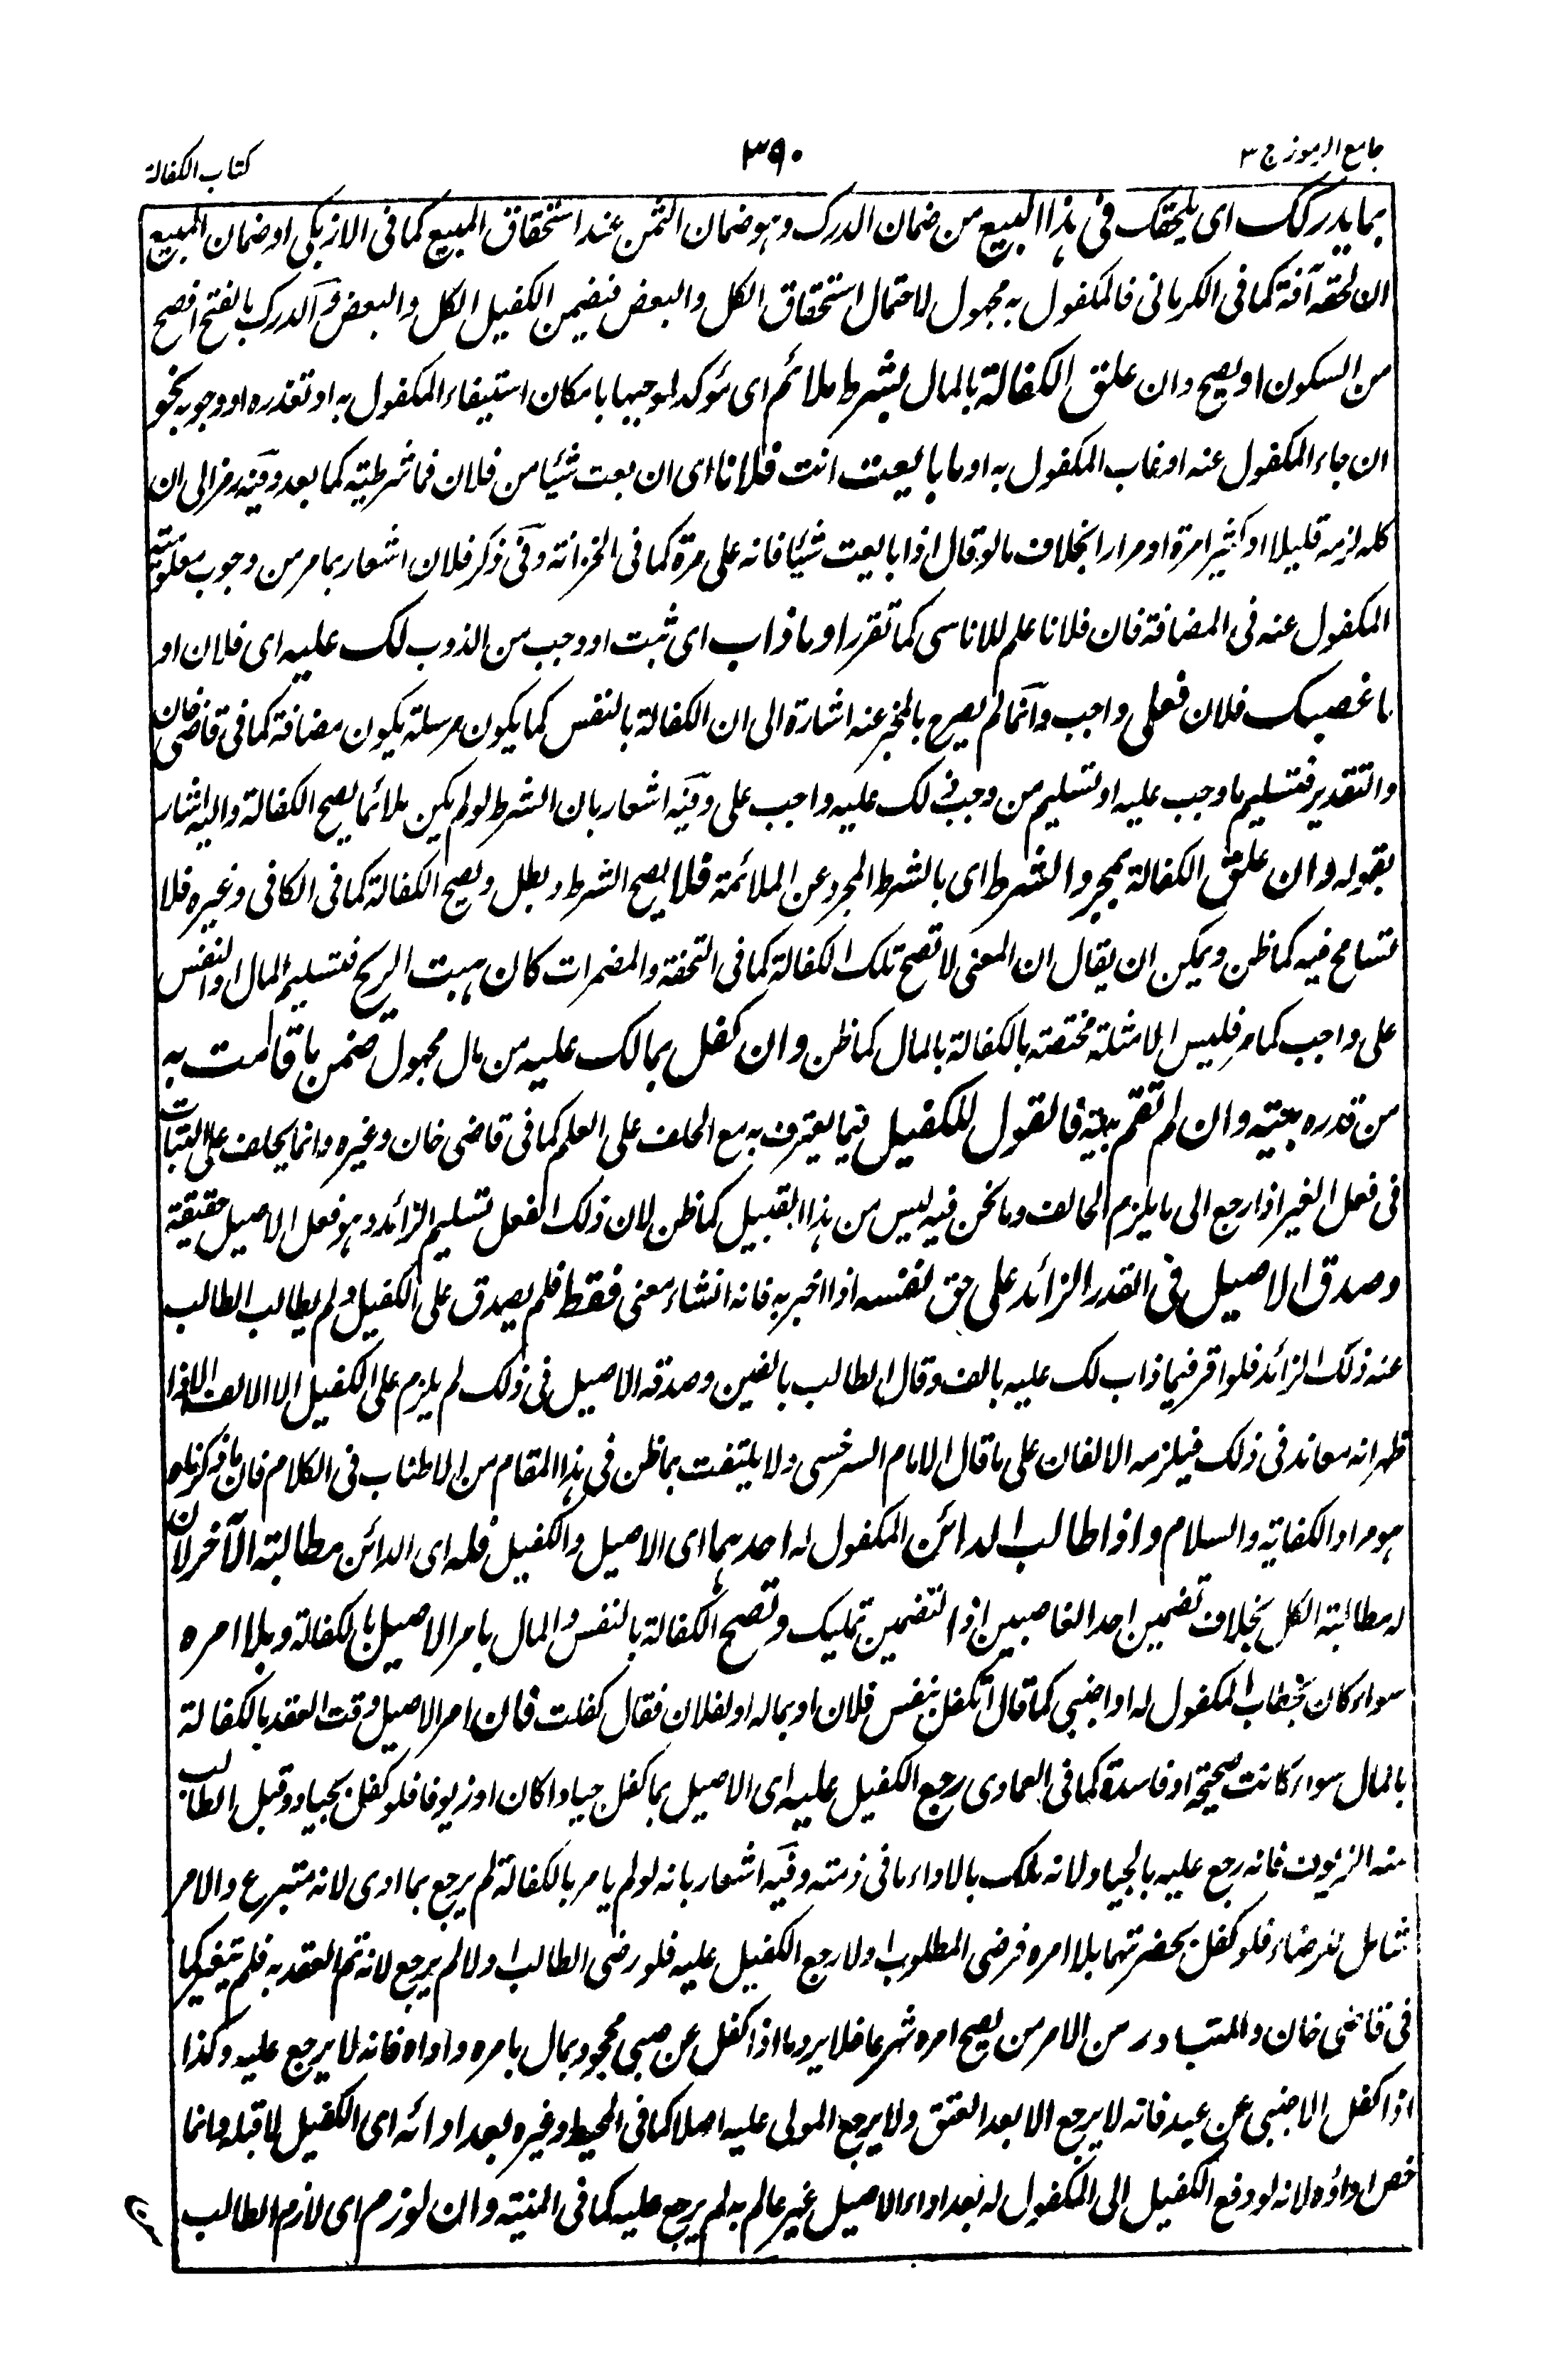 جامع الرموز ج ٣
٣٩٠
كتاب الكفالة
بما يدركك اى يلحقك فى هذا البيع من ضمان الدرك وهو ضمان الثمن عند استحقاق المبيع كما فى الازبكى او ضمان المبيع
ان لحقه آفة كما فى الكرمانى فالمكفول به مجهول لاحتمال استحقاق الكل والبعض فيضمن الكفيل الكل والبعض والدرك بالفتح افصح
من السكون او يصح وان علق الكفالة بالمال بشرط ملائم اى مؤكد لموجبها بامكان استيفاء المكفول به او تعذره او وجوبه نحو
ان جاء المكفول عنه او غاب المكفول به او ما بايعت انت فلانا اى ان بعت شيئا من فلان فما شرطية كما بعد وفيه رمز الى ان
كله لزمه قليلا او كثيرا مرة او مرارا بخلاف ما لو قال اذا بايعت شيئا فانه على مرة كما فى الخزانة وفى ذكر فلان اشعار بما مر من وجوب معلومية
المكفول عنه فى المضافة فان فلانا علم للاناسى كما تقرر او ما ذاب اى ثبت او وجب من الذوب لك عليه اى فلان او
ما غصبك فلان فعلى واجب وانما لم يصرح بالمخبر عنه اشارة الى ان الكفالة بالنفس كما يكون مرسلة يكون مضافة كما فى قاضى خان
والتقدير فتسليم ما وجب عليه او تسليم من وجب لك عليه واجب على وفيه اشعار بان الشرط لو لم يكن ملائما يصح الكفالة واليه اشار
بقوله وان علق الكفالة بمجرد الشرط اى بالشرط المجرد عن الملائمة فلا يصح الشرط وبطل ويصح الكفالة كما فى الكافى وغيره فلا
تسامح فيه كما ظن ويمكن ان يقال ان المعنى لا تصح تلك الكفالة كما فى التحفة والمضمرات كان هبت الريح فتسليم المال او النفس
على واجب كما مر فليس الامثلة مختصة بالكفالة بالمال كما ظن وان كفل بما لك عليه من مال مجهول ضمن ما قامت به
من قدره بينة وان لم تقم بينة فالقول للكفيل فيما يعترف به مع الحلف على العلم كما فى قاضى خان وغيره وانما يحلف على البتات
فى فعل الغير اذا رجع الى ما يلزم الحالف وما نحن فيه ليس من هذا القبيل كما ظن لان ذلك الفعل تسليم الزائد وهو فعل الاصيل حقيقة
وصدق الاصيل فى القدر الزائد على حق نفسه اذا اخبر به فانه انشاء معنى فقط فلم يصدق على الكفيل ولم يطالب الطالب
عنه ذلك الزائد فلو اقر فيما ذاب لك عليه بالف وقال الطالب بالفين وصدقه الاصيل فى ذلك لم يلزم على الكفيل الا الالف الا اذا
ظهر انه معاند فى ذلك فيلزمه الالفان على ما قال الامام السرخسى ولا يلتفت بما ظن فى هذا المقام من الاطناب فى الكلام فان ما ذكرناه
هو مراد الكفاية والسلام واذا طالب الدائن المكفول له احدهما اى الاصيل والكفيل فله اى الدائن مطالبة الآخر لان
له مطالبة الكل بخلاف تضمين احد الغاصبين اذ التضمين تمليك وتصح الكفالة بالنفس والمال بامر الاصيل بالكفالة وبلا امره
سواء كان بخطاب المكفول له او اجنبى كما قال اتكفل بنفس فلان او بماله او لفلان فقال كفلت فان امر الاصيل وقت العقد بالكفالة
بالمال سواء كانت صحيحة او فاسدة كما فى العمادى رجع الكفيل عليه اى الاصيل بما كفل جيادا كان او زيوفا فلو كفل بجياد وقبل الطالب
منه الزيوف فانه رجع عليه بالجياد لانه ملك بالاداء ما فى ذمته وفيه اشعار بانه لو لم يامر بالكفالة لم يرجع بما ادى لانه متبرع والامر
شامل للرضاء فلو كفل بحضرتهما بلا امره فرضى المطلوب اولا رجع الكفيل عليه فلو رضى الطالب اولا لم يرجع لانه تم العقد به فلم يتغير كما
فى قاضى خان والمتبادر من الامر من يصح امره شرعا فلا يرد ما اذا كفل عن صبى محجور بمال بامره واداه فانه لا يرجع عليه وكذا
اذا كفل الاجنبى عن عبد فانه لا يرجع الا بعد العتق ولا يرجع المولى عليه اصلا كما فى المحيط وغيره بعد ادائه اى الكفيل لا قبله وانما
خص اداؤه لانه لو دفع الكفيل الى المكفول له بعد اداء الاصيل غير عالم به لم يرجع عليه كما فى المنية وان لوزم اى لازم الطالب